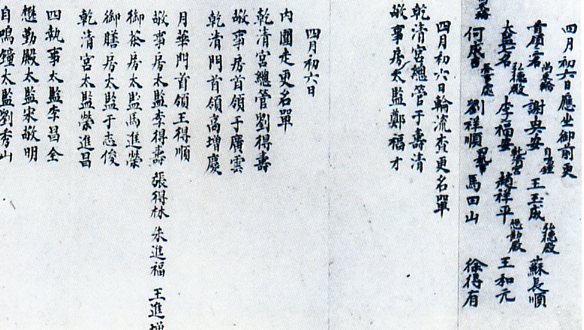 四月初六日應坐御前更
首領名 謝安安 王玉成 蘇長順
太監名 李福安 趙祥平 王和元
何 劉祥順 馬田山 徐得有
四月初六日輪流查更名單
乾清宮總管于壽清
敬事房太監鄭福才
四月初六日
內圍走更名單
乾清宮總管劉得壽
敬事房首領于廣雲
乾清門首領高增慶
月華門首領王得順
敬事房太監李得壽 張得林 朱進福 王進增
御茶房太監馬進榮
御膳房太監于志俊
乾清宮太監榮進昌
四執事太監李昌全
懋勤殿太監宋敬明
自鳴鐘太監劉秀山